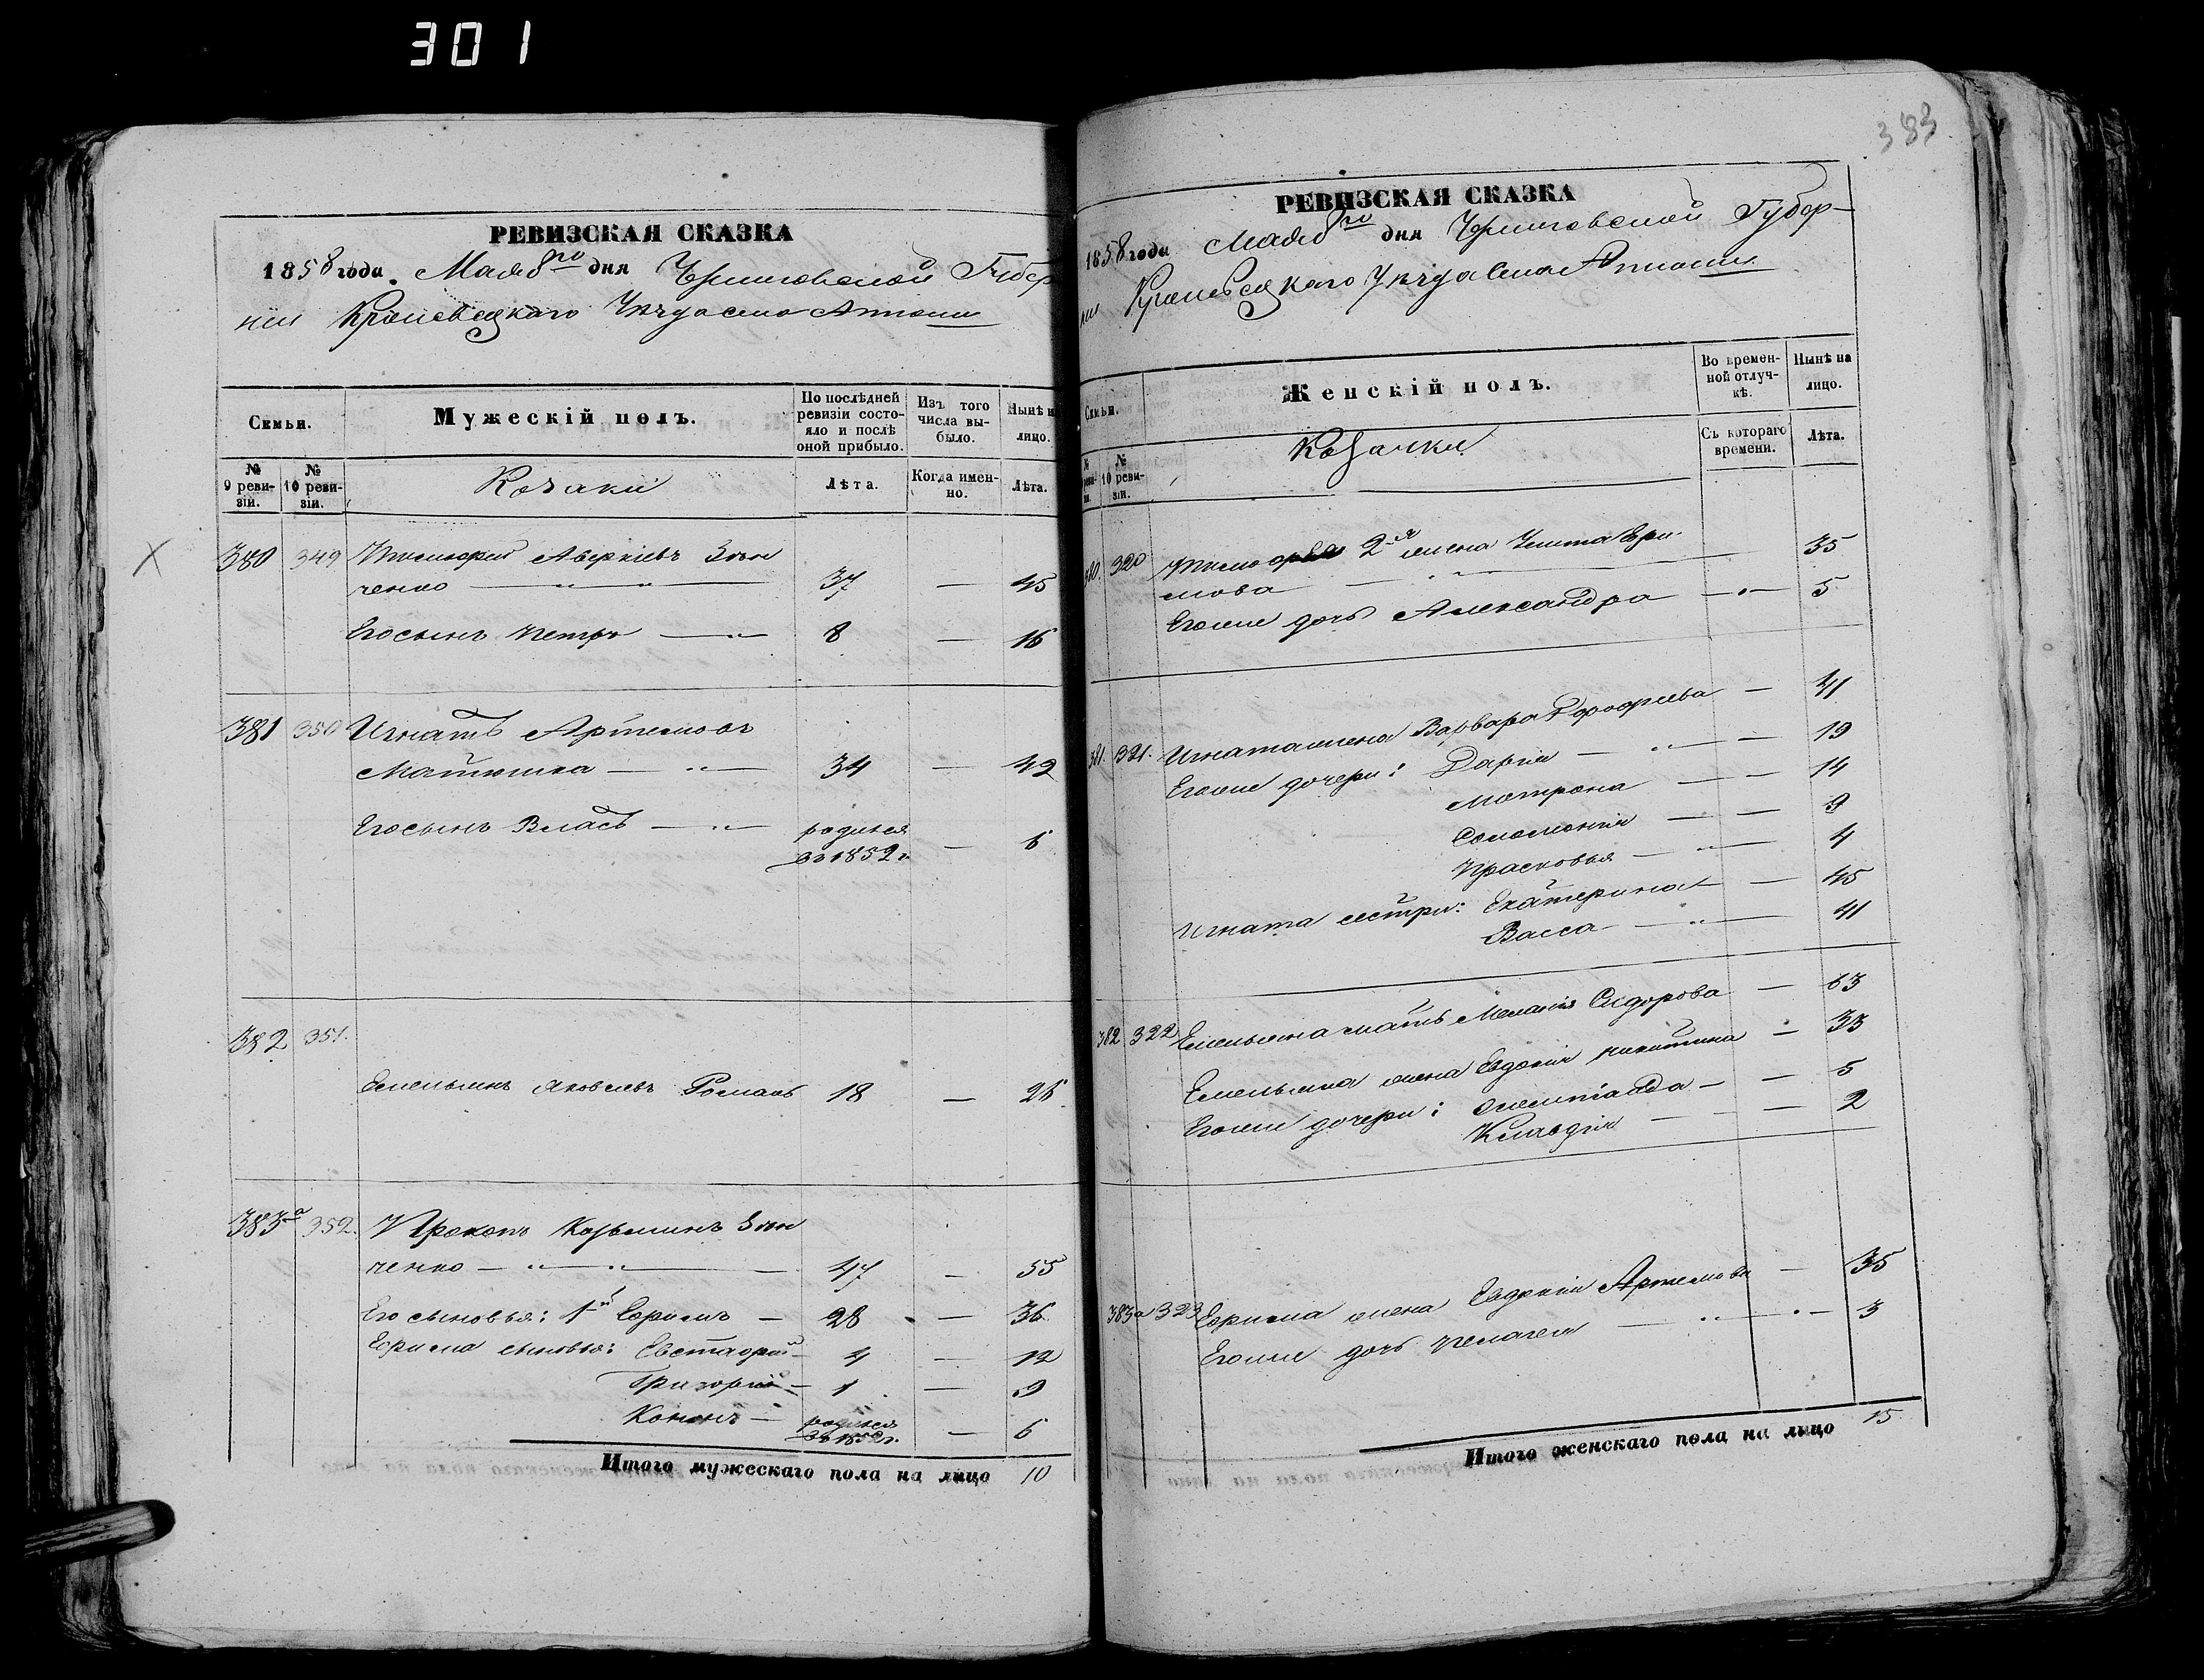 301
РЕВИЗСКАЯ СКАЗКА
1858 года Мая 8го дня Черниговской Губер
нiи Кролевецкаго Уѣзда села
Семьи.
Мужескій полъ.
По послѣдней ревизіи состо-
яло и послѣ
оной прибыло.
Изъ того
числа вы-
было.
Нынѣ н
лицо.
№
9 реви-
зіи.
№
10 реви-
зіи.
Козаки
Лѣта.
Когда имен-
но.
Лѣта.
380 349 Тимофей Аверкіевъ Зѣн
ченко — " — " — 37 — 45
Его сынъ Петръ — " — 8 — 16
381 350 Игнатъ Артемовъ
Матюшка — " — 34 — 42
Его сынъ Власъ — " — родился
въ 1852 г. — 6
382 351.
Емельянъ Яковлевъ 18 — 26
383а 352. Прокопъ Козьминъ Зѣн
ченко — " — " — 47 — 55
Его сыновья: 1й Ефимъ — 28 — 36
Ефима сыновья: Евстафій — 4 — 12
Григорій — 1 — 9
Кононъ — родился
въ 1852 г. — 6
Итого мужескаго пола на лицо 10
383
РЕВИЗСКАЯ СКАЗКА
1858 года Мая 8го дня Черниговской Губер-
нiи Кролевецкаго Уѣзда села
Семьи.
Женскій полъ.
Во времен-
ной отлуч-
кѣ.
Нынѣ на
лицо.
№
10 реви-
зіи.
Козачки
Съ котораго
времени.
Лѣта.
380. 320 2я жена
мова — " — 35
Его же дочь Александра — " — 5
381. 321. Игната жена Варвара Дорофѣева — 41
Его же дочери: Дарія — " — 19
Матрона — — 14
Соломонія — — 9
Прасковья — " — 4
Игната сестры: Екатерина — — 45
Васса — " — 41
382 322 Емельяна мать Меланія Сидорова — 63
Емельяна жена Евдокія Никитина — 33
Его же дочери: — — 5
Клавдія — — 2
383а 323 Ефима жена Евдокія Артемова — 35
Его же дочь Пелагея — " — 3
Итого женскаго пола на лицо 15